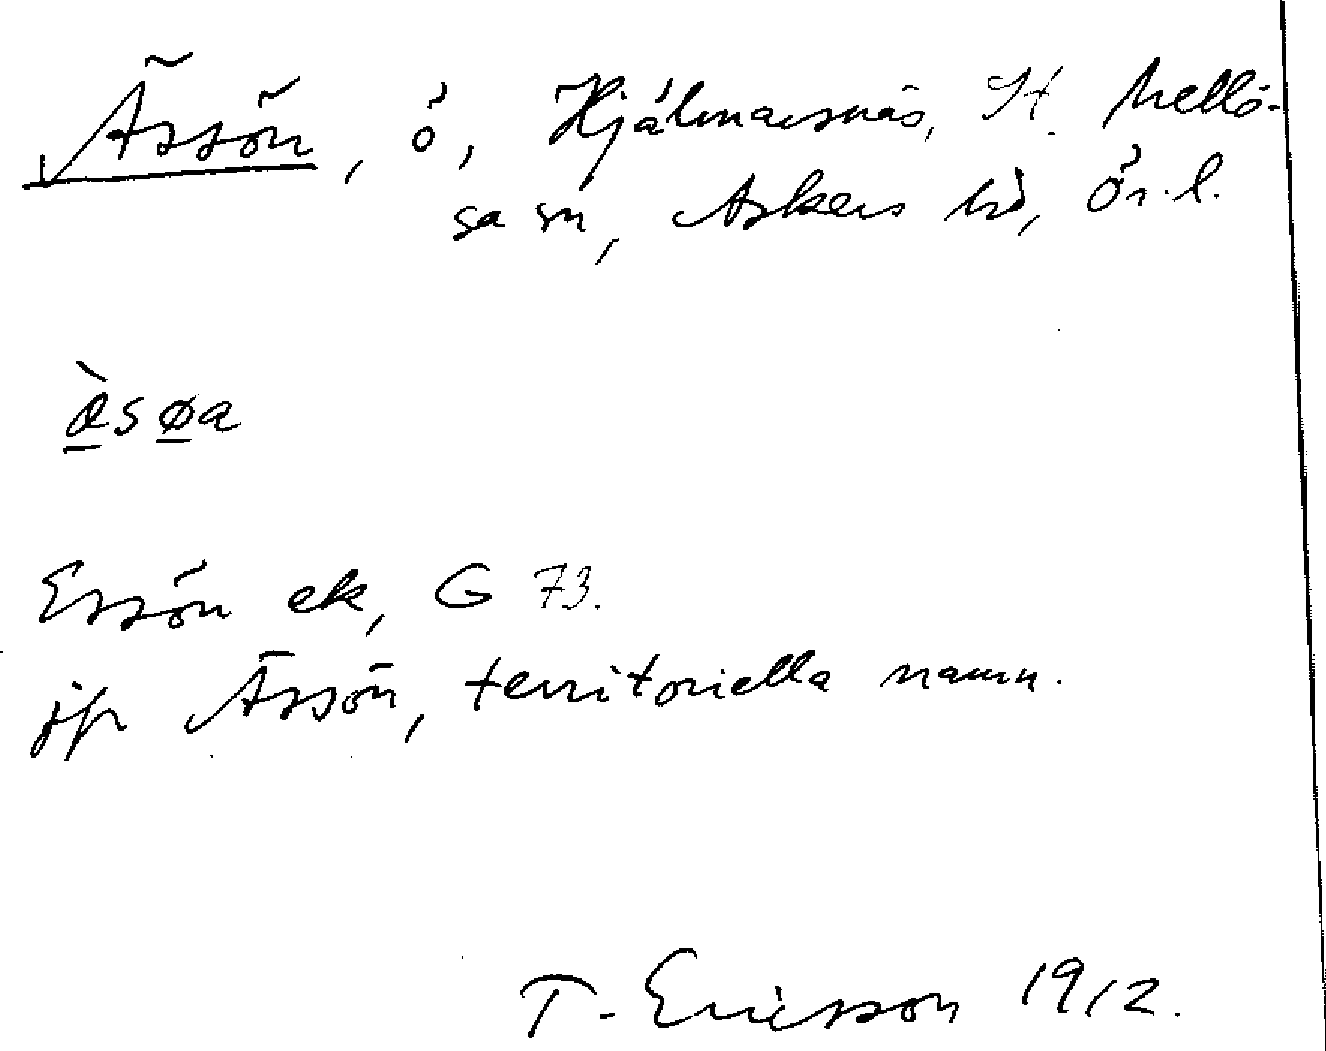 Ässön, ö, Hjälmarsnäs, St. Mellö-
sa sn, Askers hd, Ör. l.
æ̀søa
Essön ek, G 73.
jfr Ässön, territoriella namn.
T. Ericsson 1912.